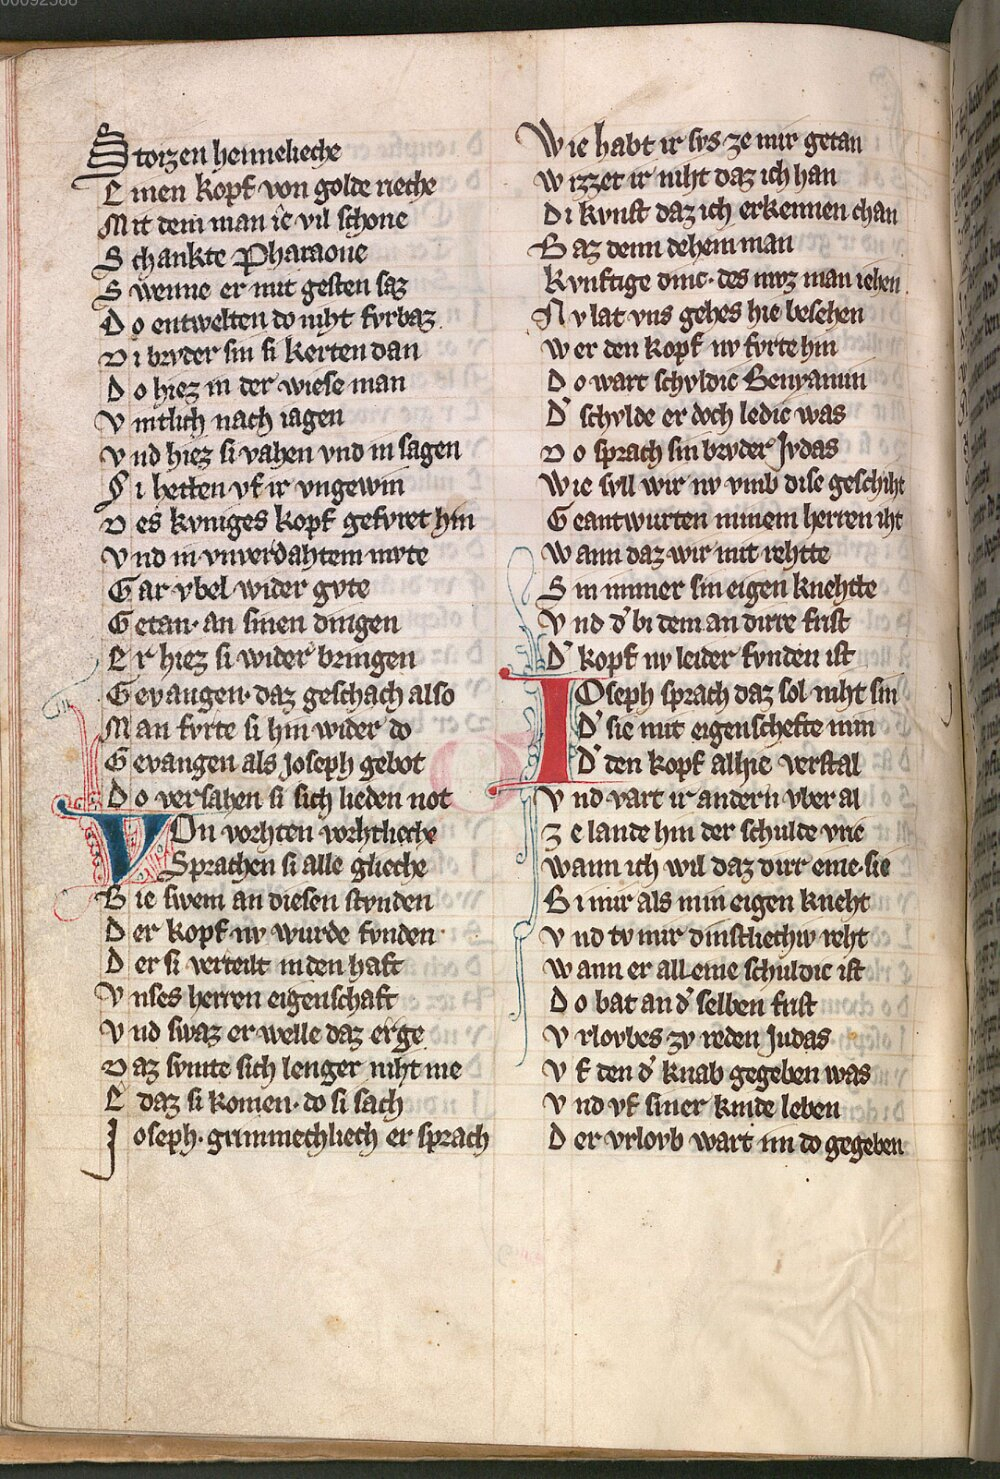 00092588
Storzen hennelieche
Einen kopf von golde rieche
Mit dem man îe vil schone
Schankte Pharaone
Swenne er mit gesten saz
Do entwelten do niht fvrbaz
Di brvder sin si kerten dan
Do hiez in der wiese man
Vintlich nach iagen
Vnd hiez si vahen vnd in sagen
Si hetten vf ir vngewin
Des kvniges kopf gefvret hin
Vnd in vnverdahtem mvte
Gar vbel wider gvte
Getan· an sinen dingen
Er hiez si wider bringen
Gevangen· daz geschach also
Man fvrte si hin wider do
Gevangen als Joseph gebot
Do versahen si sich lieden not
VOn vorhten vorhtlieche
Sprachen si alle glieche
Bie swem an diesen stvnden
Der kopf nv wurde fvnden
Der si verteilt in den haft
Vnses herren eigenschaft
Vnd swaz er welle daz erge
Daz svmte sich lenger niht me
E daz si komen· do si sach
Joseph· grimmechliech er sprach
Wie habt ir svs ze mir getan
Wizzet ir niht daz ich han
Di kvnst daz ich erkennen chan
Baz denn dehein man
Kvnftige dinc· des mvz man iehen
Nv lat vns gehes hie besehen
Wer den kopf nv fvrte hin
Do wart schvldic Benyamin
D' schvlde er doch ledic was
Do sprach sin brvder Jvdas
Wie svll wir nv vmb dise geschiht
Geantwurten minem herren iht
Wann daz wir mit rehtte
Sin immer sin eigen knehtte
Vnd d' bi dem an dirre frist
D' kopf nv leider fvnden ist
IOseph sprach daz sol niht sin
D' sie mit eigenschefte min
D' den kopf allhie verstal
Vnd vart ir andern vber al
Ze lande hin der schulde vrie
Wann ich wil daz dirr eine· sie
Bi mir als min eigen kneht
Vnd tv mir dinstliechiv reht
Wann er all eine schuldic ist
Do bat an d' selben frist
Vrlovbes zv reden Judas
Vf den d' knab gegeben was
Vnd vf siner kinde leben
Der vrlovb wart im do gegeben